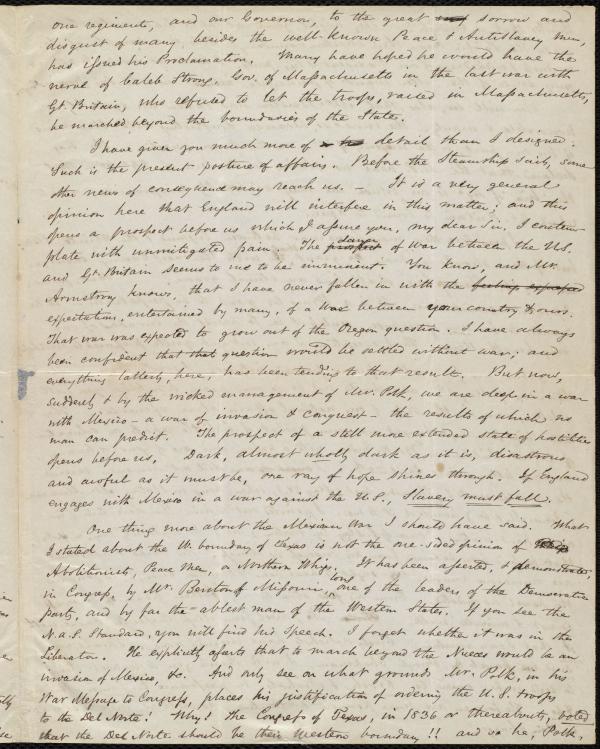 one regiment, and our Governor, to the great sorrow and
disgust of many besides the well-known Peace & Antislavery men,
has issued his Proclamation. Many have hoped he would have the
nerve of Caleb Strong, Gov. of Massachusetts in the last war with
Gt. Britain, who refused to let the troops, raised in Massachusetts,
be marched beyond the boundaries of the State.
I have given you much more of detail than I designed.
Such is the present posture of affairs. Before the Steamship sails, some
other news of consequence may reach us. — It is a very general
opinion here that England will interfere in this matter; and this
opens a prospect before us which I assure you, my dear Sir, I contem-
plate with unmitigated pain. The prospect danger of War between the U.S.
and Gt. Britain seems to me to be imminent. You know, and Mr.
Armstrong knows, that I have never fallen in with the feelings expressed
expectation, entertained by many, of a War between your country & ours.
That war was expected to grow out of the Oregon question. I have always
been confident that that question would be settled without war; and
everything latterly, here, has been tending to that result. But now,
suddenly & by the wicked management of Mr. Polk, we are deep in a war
with Mexico – a war of invasion & conquest – the results of which no
man can predict. The prospect of a still more extended state of hostilities
opens before us. Dark, almost wholly dark as it is, disastrous
and awful as it must be, one ray of hope shines through. If England
engages with Mexico in a war against the U.S., Slavery must fall.
One thing more about the Mexican War I should have said. What
I stated about the W. boundary of Texas is not the one-sided opinion of
Abolitionists, Peace Men, or Northern Whigs. It has been asserted, & demonstrated,
in Congress, by Mr. Benton of Missouri, long one of the leaders of the Democratic
party, and by far the ablest man of the Western States. If you see the
N.A.S. Standard, you will find his Speech. I forget whether it was in the
Liberator. He explicitly asserts that to march beyond the Nueces would be an
invasion of Mexico, &c. And only see on what grounds Mr. Polk, in his
War Message to Congress, places his justification of ordering the U.S. troops
to the Del Norte! Why! the Congress of Texas, in 1836 or thereabouts, voted
that the Del Norte should be their Western boundary!! and so he, Polk,